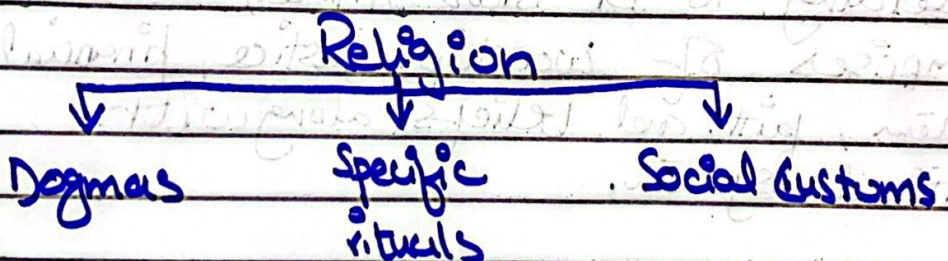 Religion
Dogmas
Specific
rituals
Social Customs